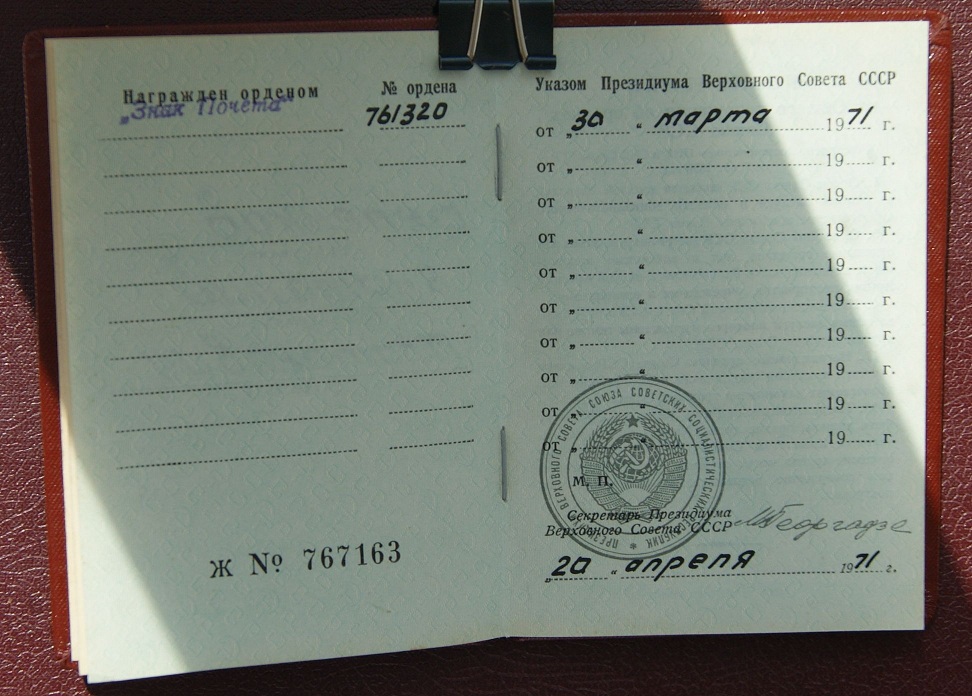 Награжден орденом
„Знак Почета“
№ ордена
761320
Ж № 767163
Указом Президиума Верховного Совета СССР
от „30“ марта 1971 г.
от „ “ 19 г.
от „ “ 19 г.
от „ “ 19 г.
от „ “ 19 г.
от „ “ 19 г.
от „ “ 19 г.
от „ “ 19 г.
от „ “ 19 г.
от „ “ 19 г.
ПРЕЗИДИУМ ВЕРХОВНОГО СОВЕТА СОЮЗА СОВЕТСКИХ СОЦИАЛИСТИЧЕСКИХ РЕСПУБЛИК
М. П.
Секретарь Президиума
Верховного Совета СССР МГеоргадзе
„20“ апреля 1971 г.